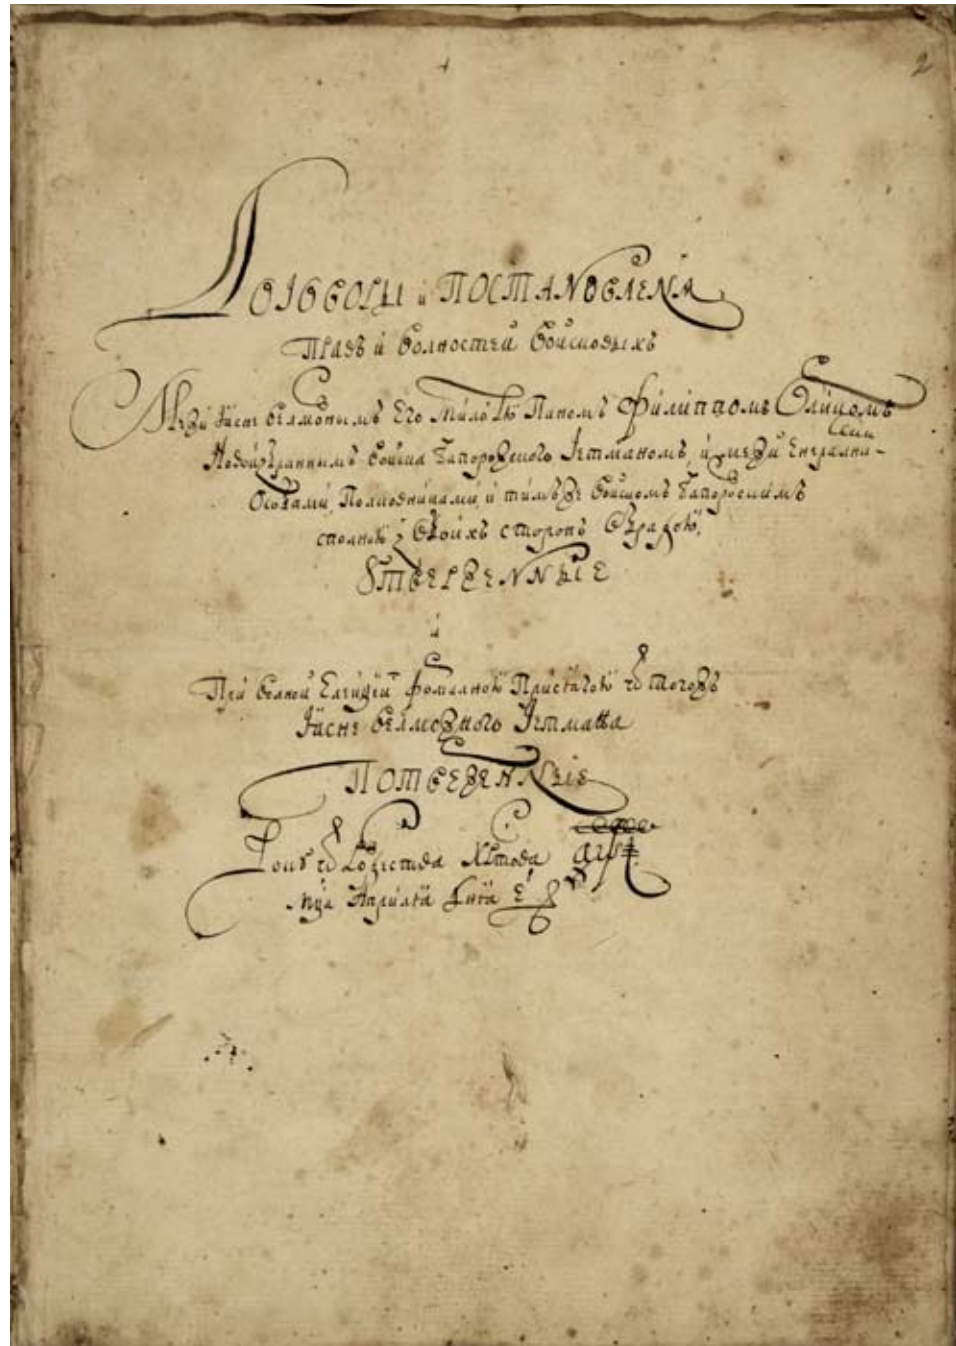 2
Договоры и ПОСТАНОВЛЕНЯ
Правъ и волностей войсковыхъ
Межи Ясне велможнымъ Его милостю Паномъ Филиппомъ Орликомъ
Новоизбраннымъ войска Запорозкого Гетманомъ, и межи Енералнı-
ми
Особами Полковниками, и тимъже войскомъ Запорозкимъ
сполною з обоихъ сторонъ обрадою,
Утверженныіе
и
При волной Елекціи формалною Присягою ѿ тогожъ
Ясне велможного Гетмана
ПОТВЕРЖЕННЫІЕ
Року ѿ Рожества Хрстова, ҂аѱı
мца Априля дня е